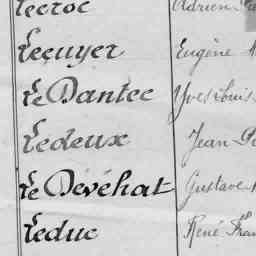 Lecroc Adrien
Lecuyer Eugène
Le Dantec Yves Louis
Ledeux Jean
Le Dévéhat Gustave
Leduc René